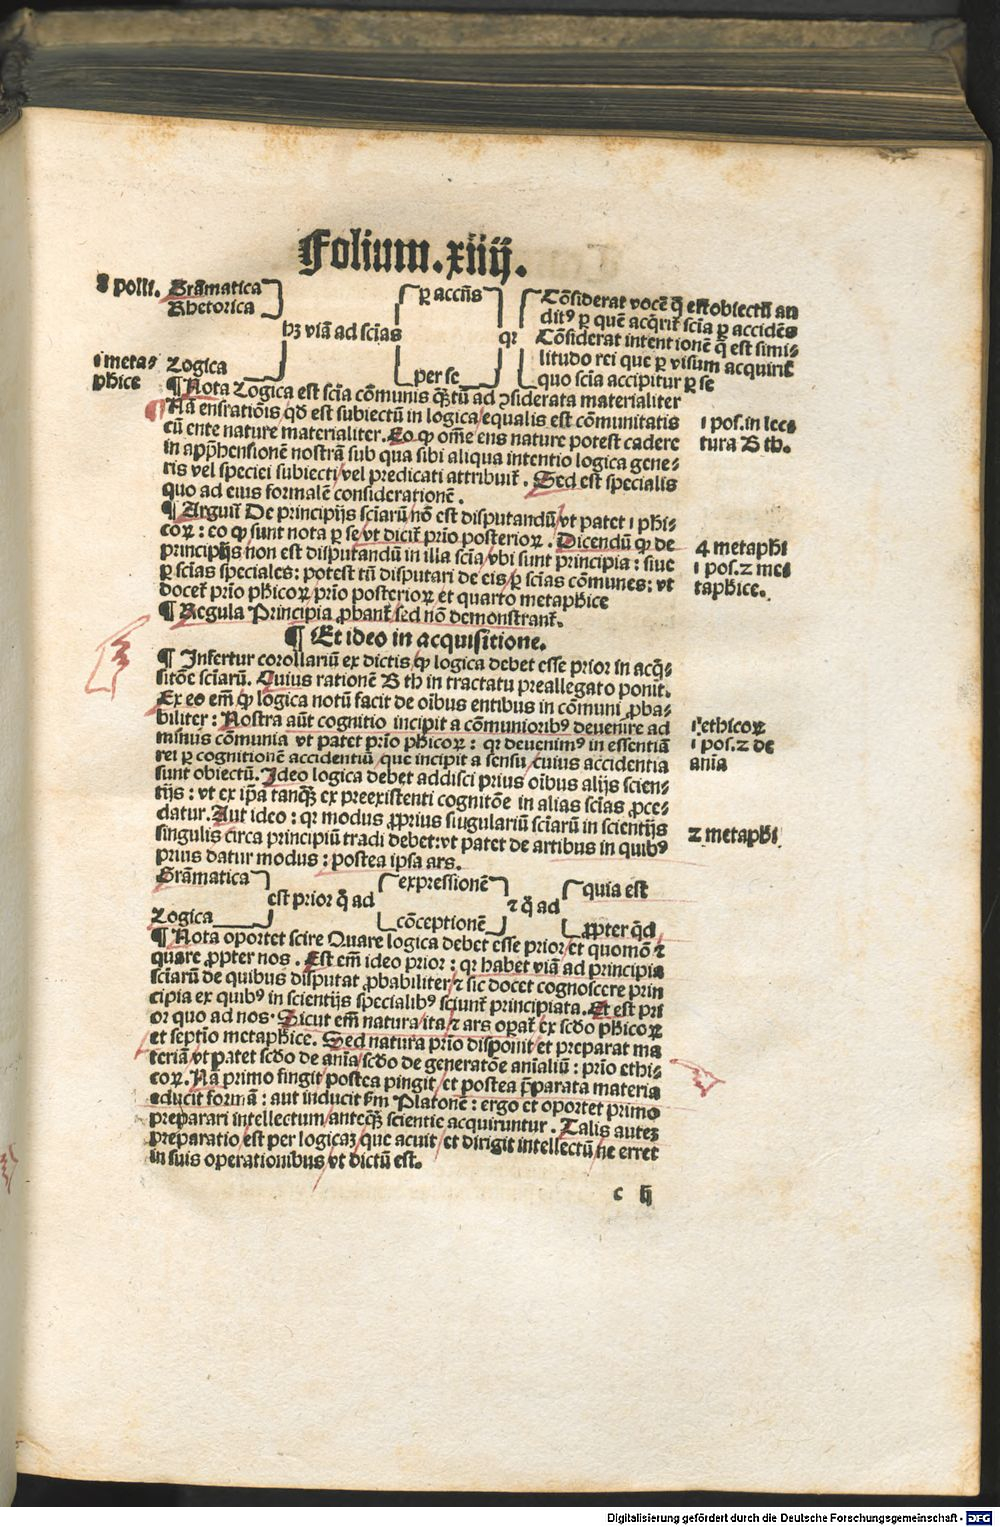 Folium.xiiij.
8 polli. Grāmatica
Rhetorica
hȝ viā ad scīas
i metaphice
Logica
ꝑ accīs
per se
qꝛ
Cōsiderat vocē q̄ est obiectū auditꝰ ꝑ quē acq̄rit᷑ scīa ꝑ accidēs
Cōsiderat intentionē q̄ est similitudo rei que ꝑ visum acquirit᷑
quo scīa accipitur ꝑ se
¶ Nota Logica est scīa cōmunis qȝtū ad ꝯsiderata materialiter
Nā ens rationis qd̄ est subiectū in logica/equalis est cōmunitatis
cū ente nature materialiter. Eo ꝙ om̄e ens nature potest cadere
in apprehensionē nostrā sub qua sibi aliqua intentio logica gene-
ris vel speciei subiecti/vel predicati attribuit᷑. Sed est specialis
quo ad eius formalē considerationē.
i pos.in lec-
tura B th.
¶ Arguit᷑ De principijs sciarū nō est disputandū/vt patet i phi-
coꝝ: eo ꝙ sunt nota ꝑ se/vt dicit᷑ prīo posterioꝝ. Dicendū ꝙ de
principijs non est disputandū in illa scīa/vbi sunt principia: siue
ꝑ scīas speciales: potest tn̄ disputari de eis/ꝑ scīas cōmunes: vt
docet᷑ prīo phicoꝝ/prīo posterioꝝ et quarto metaphice
4 metaphi
i pos.ꝛ me-
taphice.
¶ Regula Principia ꝓbant᷑/sed nō demonstrant᷑.
¶ Et ideo in acquisitione.
¶ Infertur corollariū ex dictis/ꝙ logica debet esse prior in acq̄-
sitōe sciarū. Cuius rationē B th in tractatu preallegato ponit.
Ex eo em̄ ꝙ logica notū facit de oībus entibus in cōmuni ꝓba-
biliter: Nostra aūt cognitio incipit a cōmunioribꝰ deuenire ad
minus cōmunia vt patet prīo phicoꝝ: qꝛ deuenimꝰ in essentiā
rei ꝑ cognitionē accidentiū/que incipit a sensu/cuius accidentia
sunt obiectū. Ideo logica debet addisci prius oībus alijs scien-
tijs: vt ex ip̄a tanqȝ ex preexistenti cognitōe in alias scīas ꝓce-
datur. Aut ideo: qꝛ modus ꝓprius singulariū sciarū in scientijs
singulis circa principiū tradi debet: vt patet de artibus in quibꝰ
prius datur modus: postea ipsa ars.
i ethicoꝝ
i pos.ꝛ de
ania
2 metaphi
Grāmatica
Logica
est prior q̄ ad
expressionē
cōceptionē
ꝛ q̄ ad
quia est
ꝓpter qd̄
¶ Nota oportet scire Quare logica debet esse prior/et quomō ꝛ
quare ꝓpter nos. Est em̄ ideo prior: qꝛ habet viā ad principia
sciarū de quibus disputat ꝓbabiliter/ꝛ sic docet cognoscere prin
cipia ex quibꝰ in scientijs specialibꝰ sciunt᷑ principiata. Et est pri
or quo ad nos. Sicut em̄ natura/ita ꝛ ars oꝑat᷑ ex scd̄o phicoꝝ
et septīo metaphice. Sed natura prīo disponit/et preparat ma
teriā/vt patet scd̄o de anīa/scd̄o de generatōe anīaliū: prīo ethi-
coꝝ. Nā primo fingit postea pingit/et postea p̄parata materia
educit formā: aut inducit fm̄ Platonē: ergo et oportet primo
preparari intellectum/anteqȝ scientie acquiruntur. Talis auteȝ
preparatio est per logicaȝ/que acuit/et dirigit intellectū/ne erret
in suis operationibus vt dictū est.
c ij
Digitalisierung gefördert durch die Deutsche Forschungsgemeinschaft - DFG